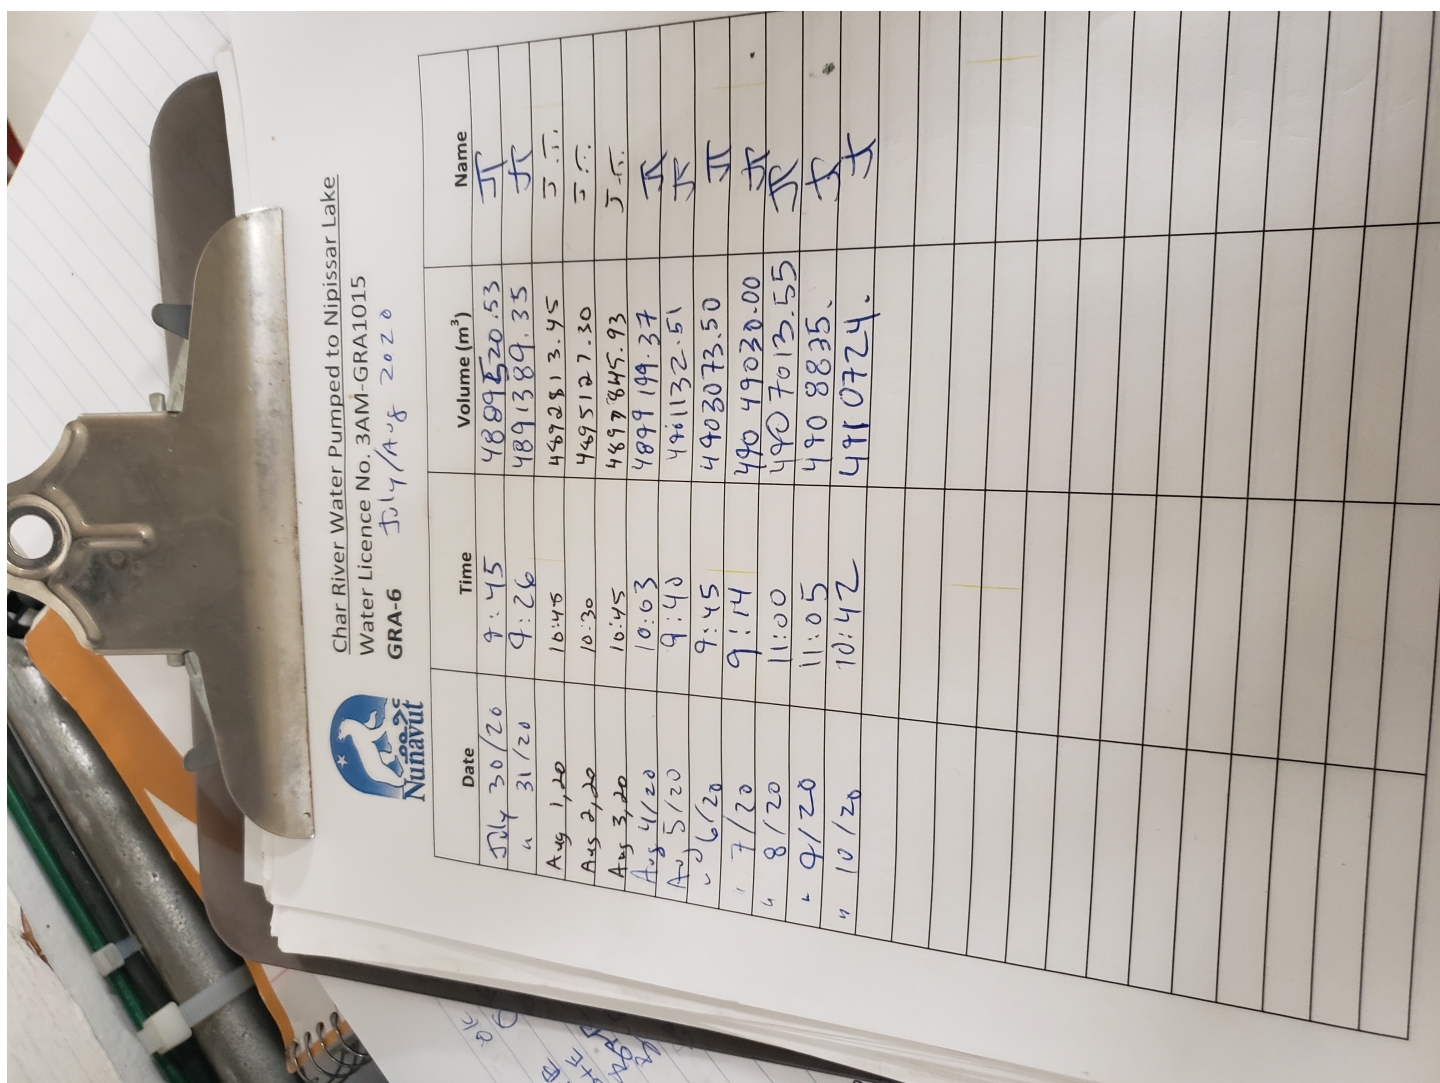 Char River Water Pumped to Nipissar Lake
Water Licence No. 3AM-GRA1015
GRA-6 July/Aug 2020
Nunavut
Date Time Volume (m³) Name
July 30/20 9:45 4889520.53 JK
" 31/20 9:26 4891389.35 JK
Aug 1,20 10:45 4892813.45 J.T.
Aug 2,20 10:30 4895127.30 J.T.
Aug 3,20 10:45 4897845.93 J.T.
Aug 4/20 10:03 4899199.37 JK
Aug 5/20 9:40 4901132.51 JK
" 6/20 9:45 4903073.50 JK
" 7/20 9:14 490 49030.00 JK
" 8/20 11:00 4907013.55 JK
" 9/20 11:05 490 8835. JK
" 10/20 10:42 4910724. JK